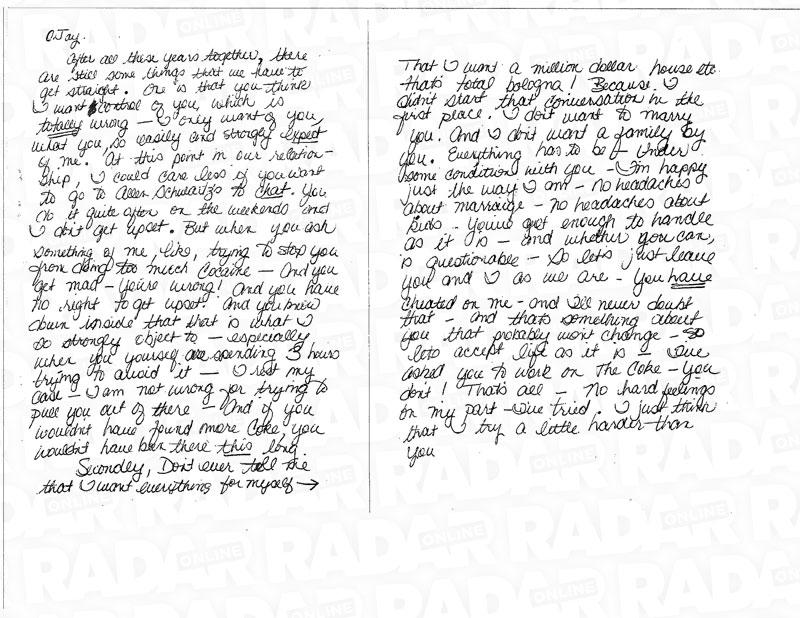 O.Jay
After all these years together, there
are still some things that we have to
get straight. One is that you think
I want control of you, which is
totally wrong — I only want of you
what you, so easily and strongly expect
of me. At this point in our relation-
ship, I could care less if you want
to go to Allen Schwartzs to chat. You
do it quite often on the weekends and
I don't get upset. But when you ask
something of me, like, trying to stop you
from doing too much Cocaine — And you
get mad — you're wrong! And you have
no right to get upset. And you know
down inside that that is what I
so strongly object to — especially
when you yourself are spending 3 hours
trying to avoid it — I rest my
case — I am not wrong for trying to
pull you out of there — And if you
wouldn't have found more Coke, you
wouldn't have been there this long.
Secondly, Don't ever tell me
that I want everything for myself →
That I want a million dollar house etc.
that's total bologna! Because I
didn't start that conversation in the
first place. I don't want to marry
you. And I don't want a family by
you. Everything has to be — Under
some condition with you — I'm happy
just the way I am — No headaches
about marriage — no headaches about
kids — You've got enough to handle
as it is — and whether you can,
is questionable — So lets just leave
you and I as we are — You have
cheated on me - and I'll never doubt
that — and thats something about
you that probably won't change — so
lets accept life as it is — I've
asked you to work on The Coke — you
don't! That's all — No hard feelings
on my part — I've tried. I just think
that I try a little harder than
you
RADAR ONLINE